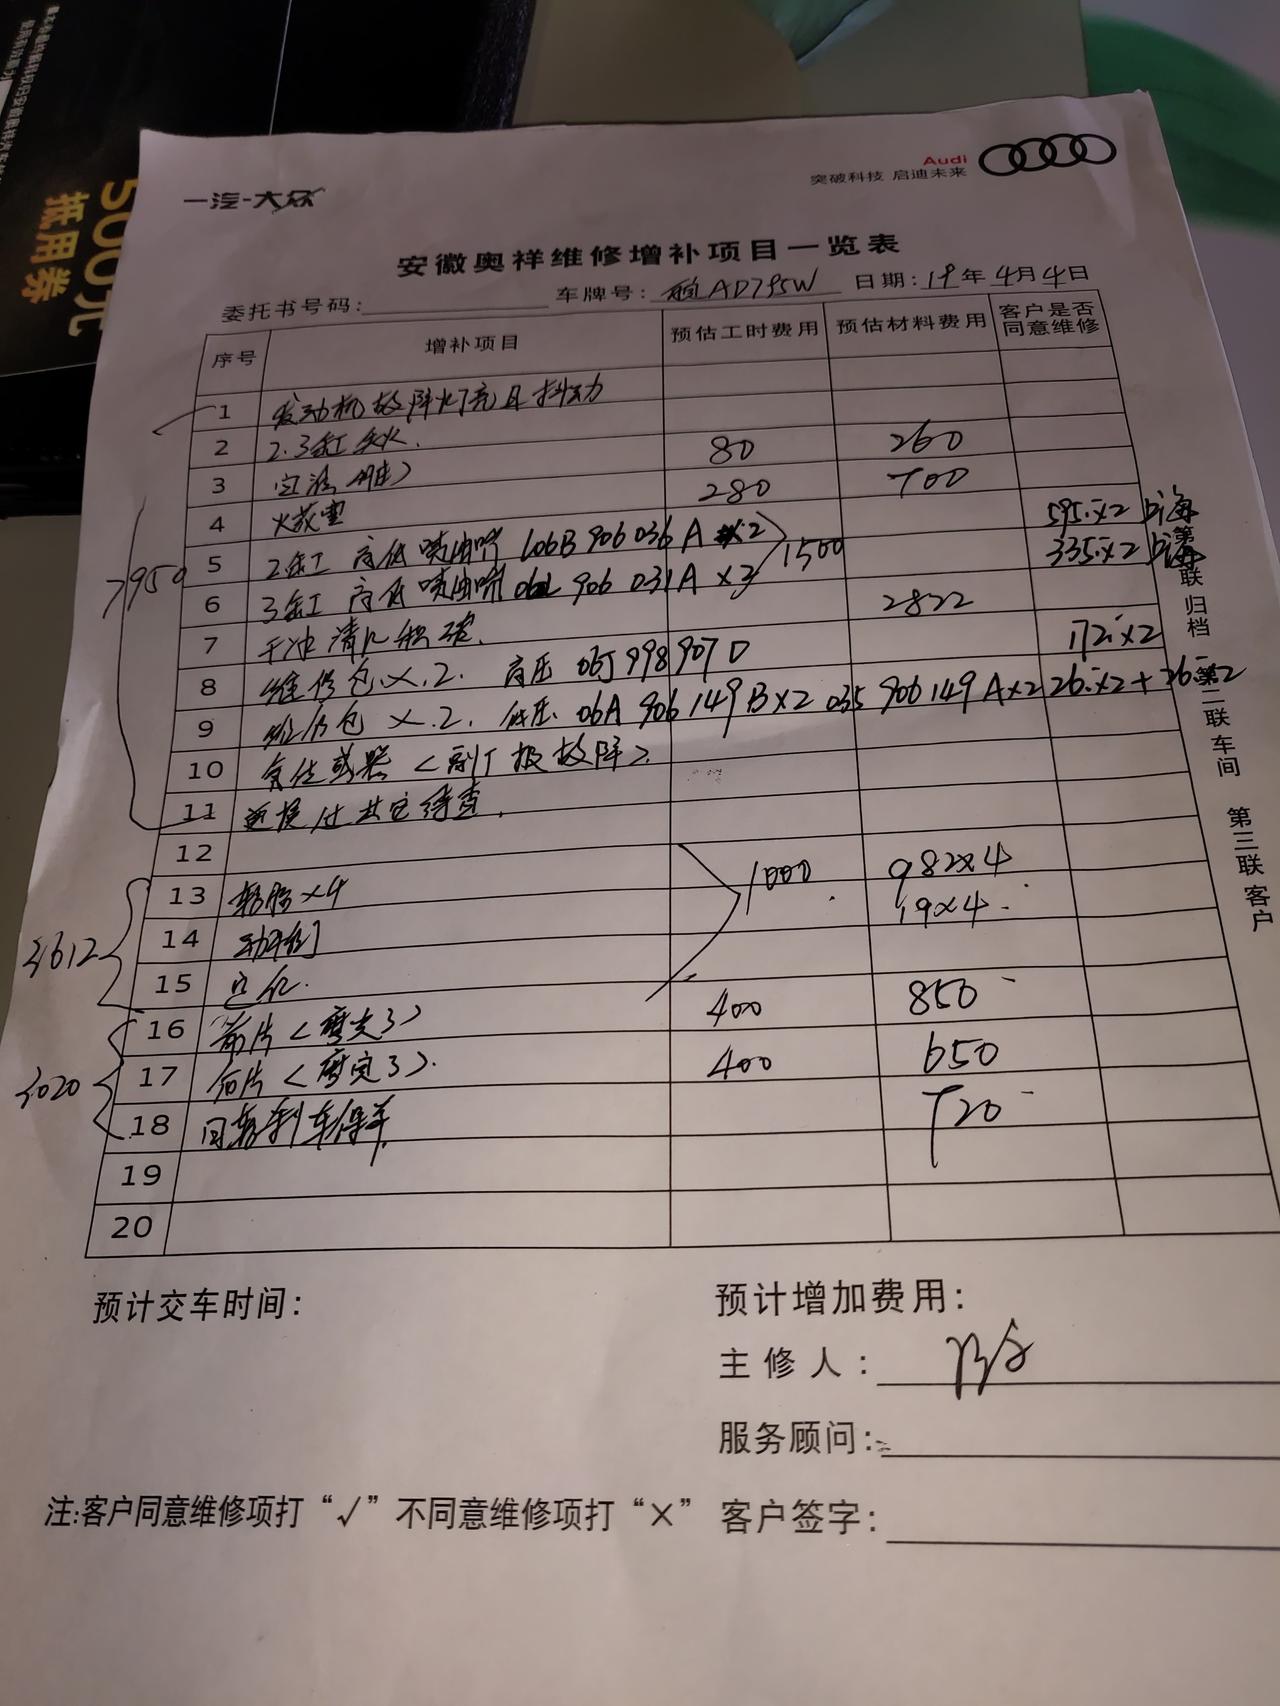 500元
抵用券
一汽-大众
Audi
突破科技 启迪未来
安徽奥祥维修增补项目一览表
委托书号码: 车牌号: AD795W 日期: 19年4月4日
序号 增补项目 预估工时费用 预估材料费用 客户是否同意维修
1 发动机故障灯亮且抖动
2 2.3缸失火.
3 80 260
4 火花塞 280 700
5 2缸 高低喷油嘴 06B 906 036 A ×2 1500 595.×2 上海
6 3缸 高低喷油嘴 06L 906 031A ×2 335.×2 上海
7 干冰清洗积碳. 2822
8 维修包 ×.2. 高压 06J 998 907 D 172.×2
9 修包 ×.2. 低压. 06A 906 149 B×2 035 906 149 A×2 26.×2 + 26.×2
10
11 更换过其它待查.
7950
12
13 轮胎×4 1000 982×4
14 动平衡 19×4
15 定位.
3612
16 前片<磨完了> 400 850
17 后片<磨完了>. 400 650
18 四轮刹车保养 720
3020
19
20
第一联 归档 第二联 车间 第三联 客户
预计交车时间: 预计增加费用:
主修人:
服务顾问:
注:客户同意维修项打“√”不同意维修项打“×” 客户签字: